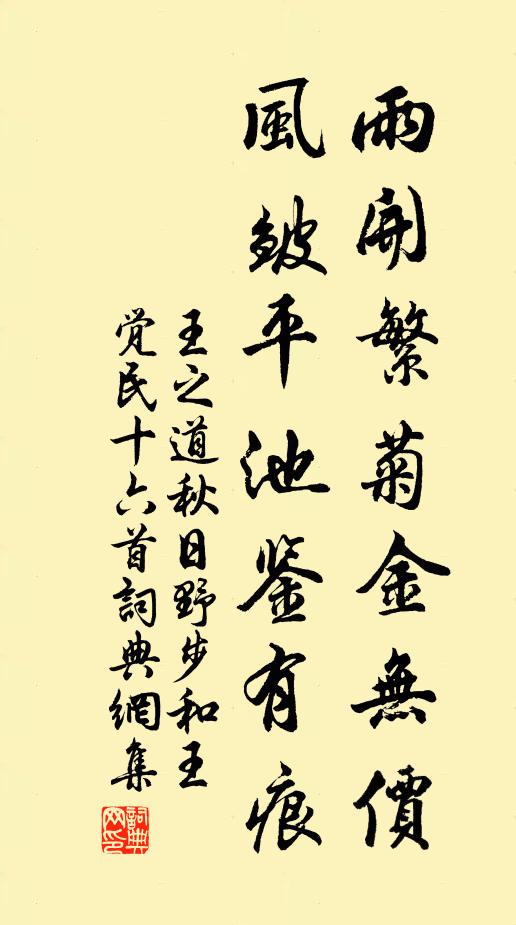 雨開繁菊金無價
風皴平池鉴有痕
王之道秋日野步和王
觉民十六首詞典網集
詞典